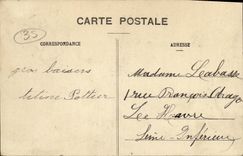 CARTE POSTALE
35
CORRESPONDANCE
ADRESSE
gros baisers
Pottier
Madame Leabasse
1 rue François Arago
Le Havre
Seine-Inférieure